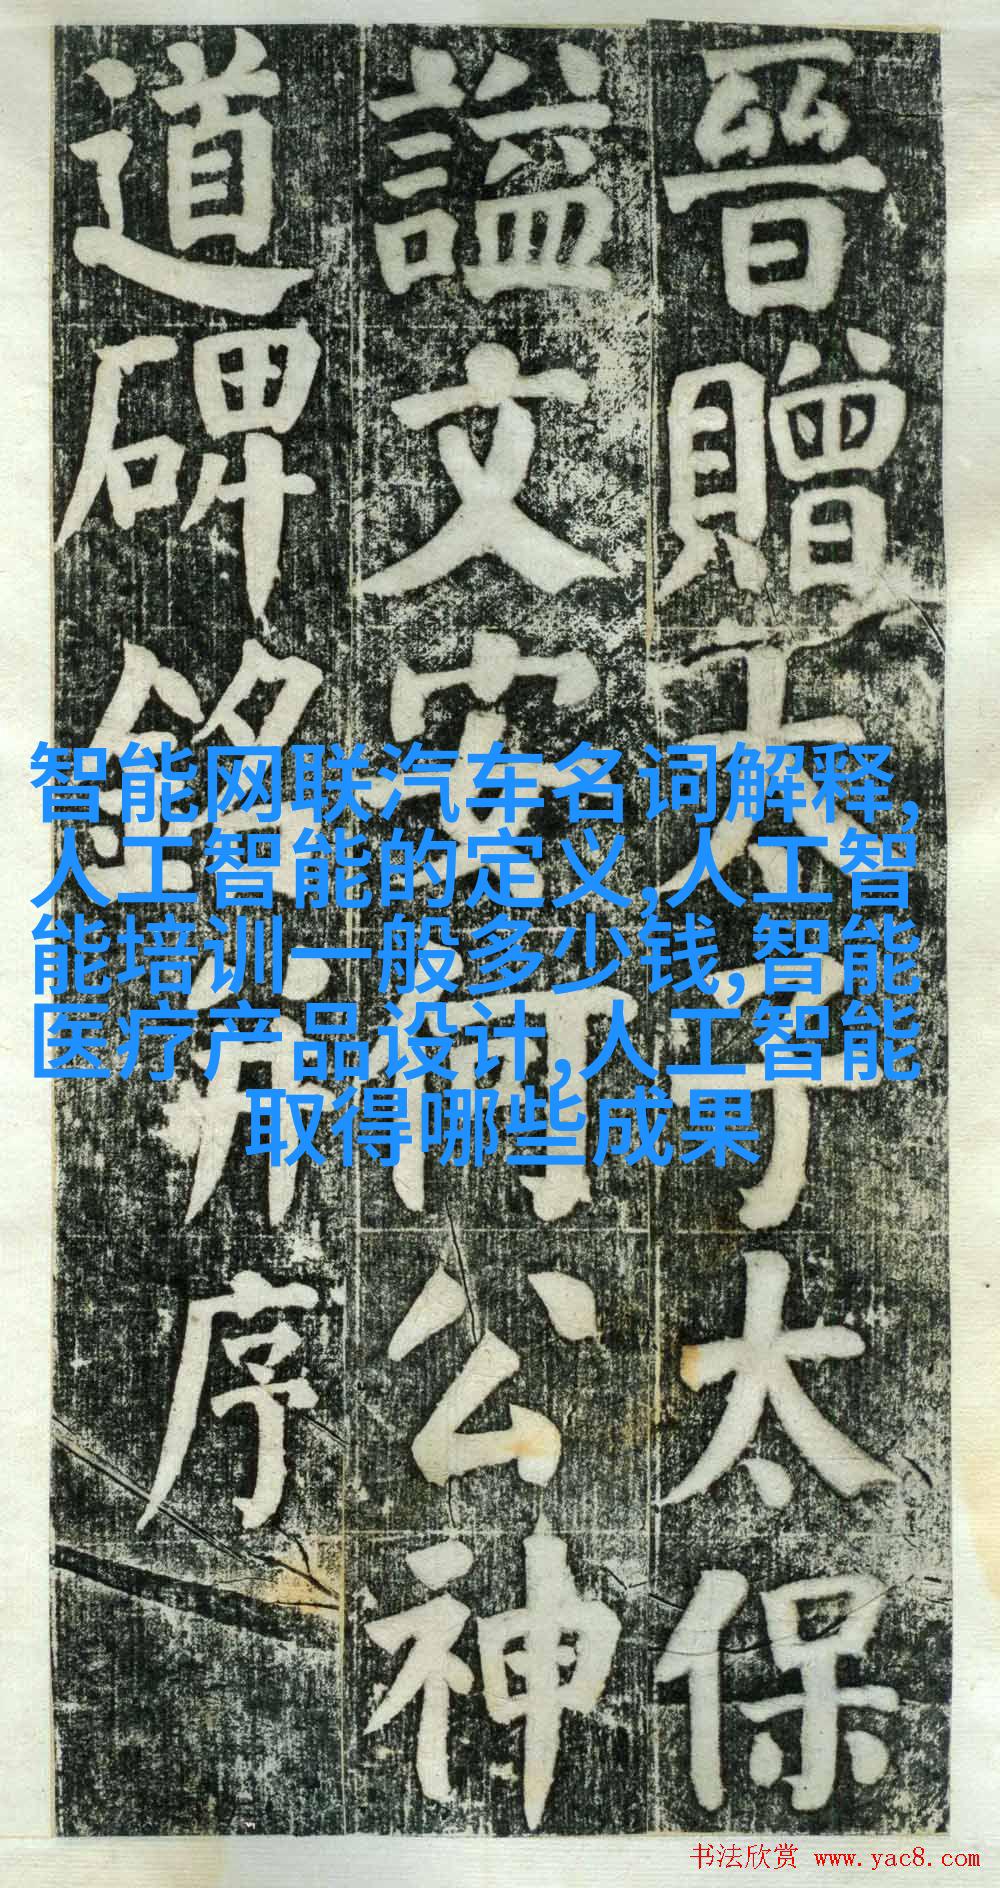 晉贈太子太保
謚文安何公神
道碑銘并序
智能网联汽车名词解释,
人工智能的定义,人工智
能培训一般多少钱,智能
医疗产品设计,人工智能
取得哪些成果
书法欣赏 www.yac8.com